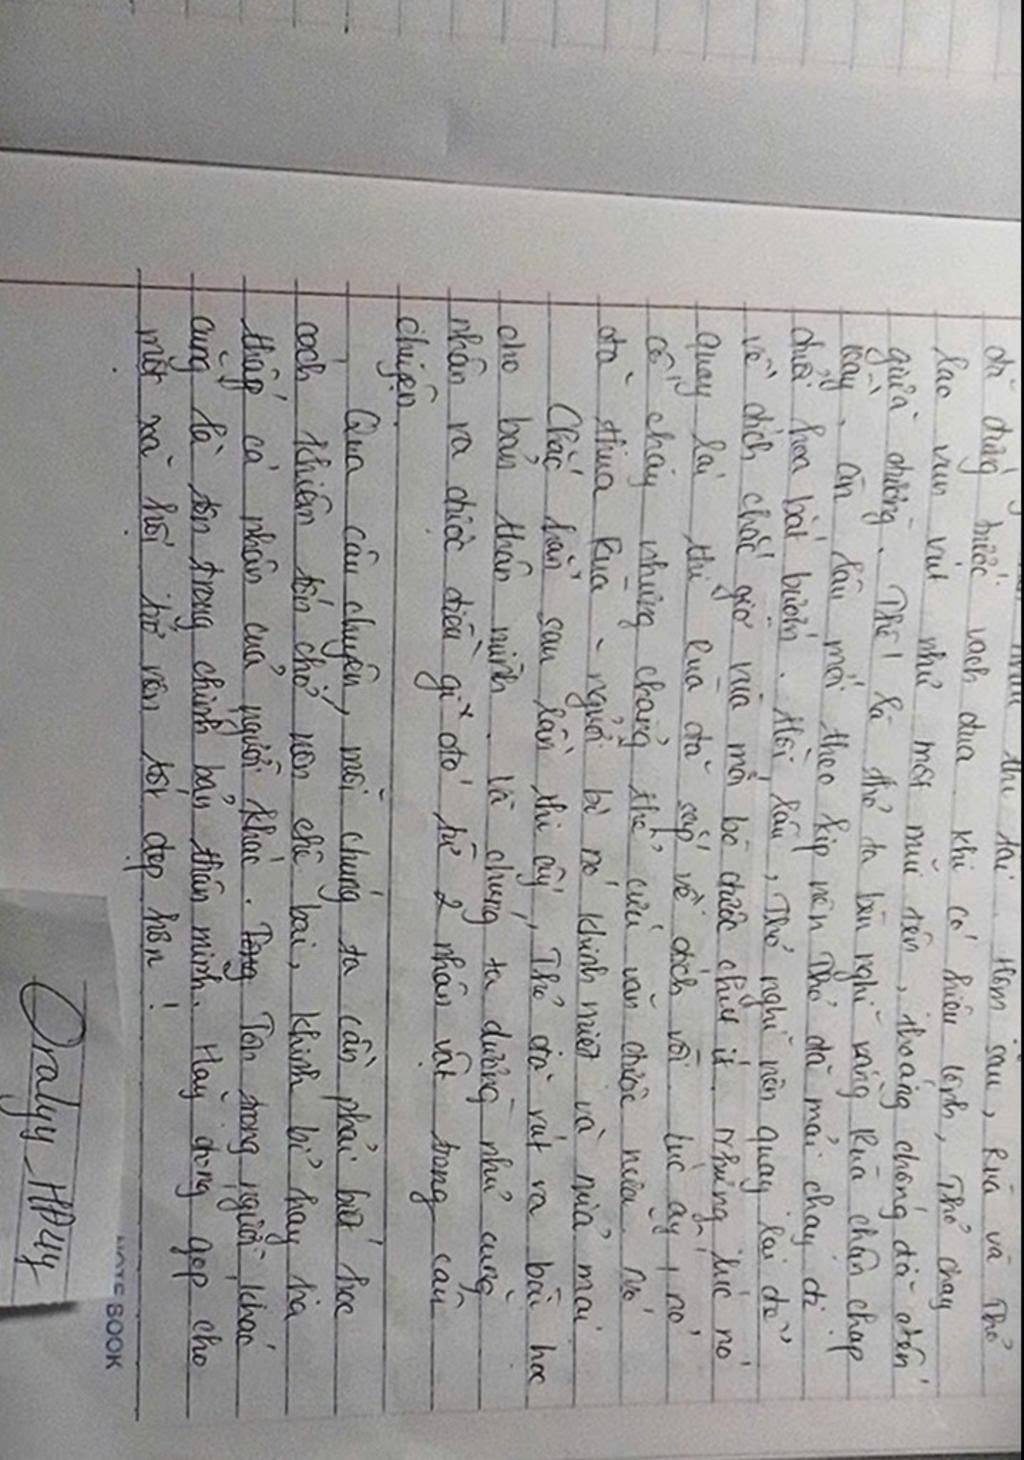 thi tài. Hôm sau, Rùa và Thỏ
đã đứng trước vạch đua. Khi có hiệu lệnh, Thỏ chạy
lao vun vút như một mũi tên, thoáng chống đã đến
giữa đường. Thế là thỏ ta bèn nghĩ rằng Rùa chân chạp
vậy, còn lâu mới theo kịp nên Thỏ đã mải chạy đi
đuổi hoa bắt bướm. Hồi lâu, Thỏ nghĩ nên quay lại để
về đích chắc giờ rùa mới bò được chút ít. Nhưng lúc nó
quay lại thì Rùa đã sắp về đích rồi. Lúc ấy, nó
cố chạy nhưng chẳng thể cứu vãn được nữa. Nó
đã thua Rùa - người bị nó khinh miệt và mỉa mai
Chắc hẳn sau lần thi ấy, Thỏ đã rút ra bài học
cho bản thân mình. Và chúng ta dường như cũng
nhận ra được điều gì đó từ 2 nhân vật trong câu
chuyện.
Qua câu chuyện, mỗi chúng ta cần phải biết học
cách khiêm tốn chớ nên chê bai, khinh bỉ hay hạ
thấp cá nhân của người khác. Tôn trọng người khác
cũng là tôn trọng chính bản thân mình. Hãy đóng góp cho
một xã hội trở nên tốt đẹp hơn!
Oralyy_HĐuy
NOTEBOOK